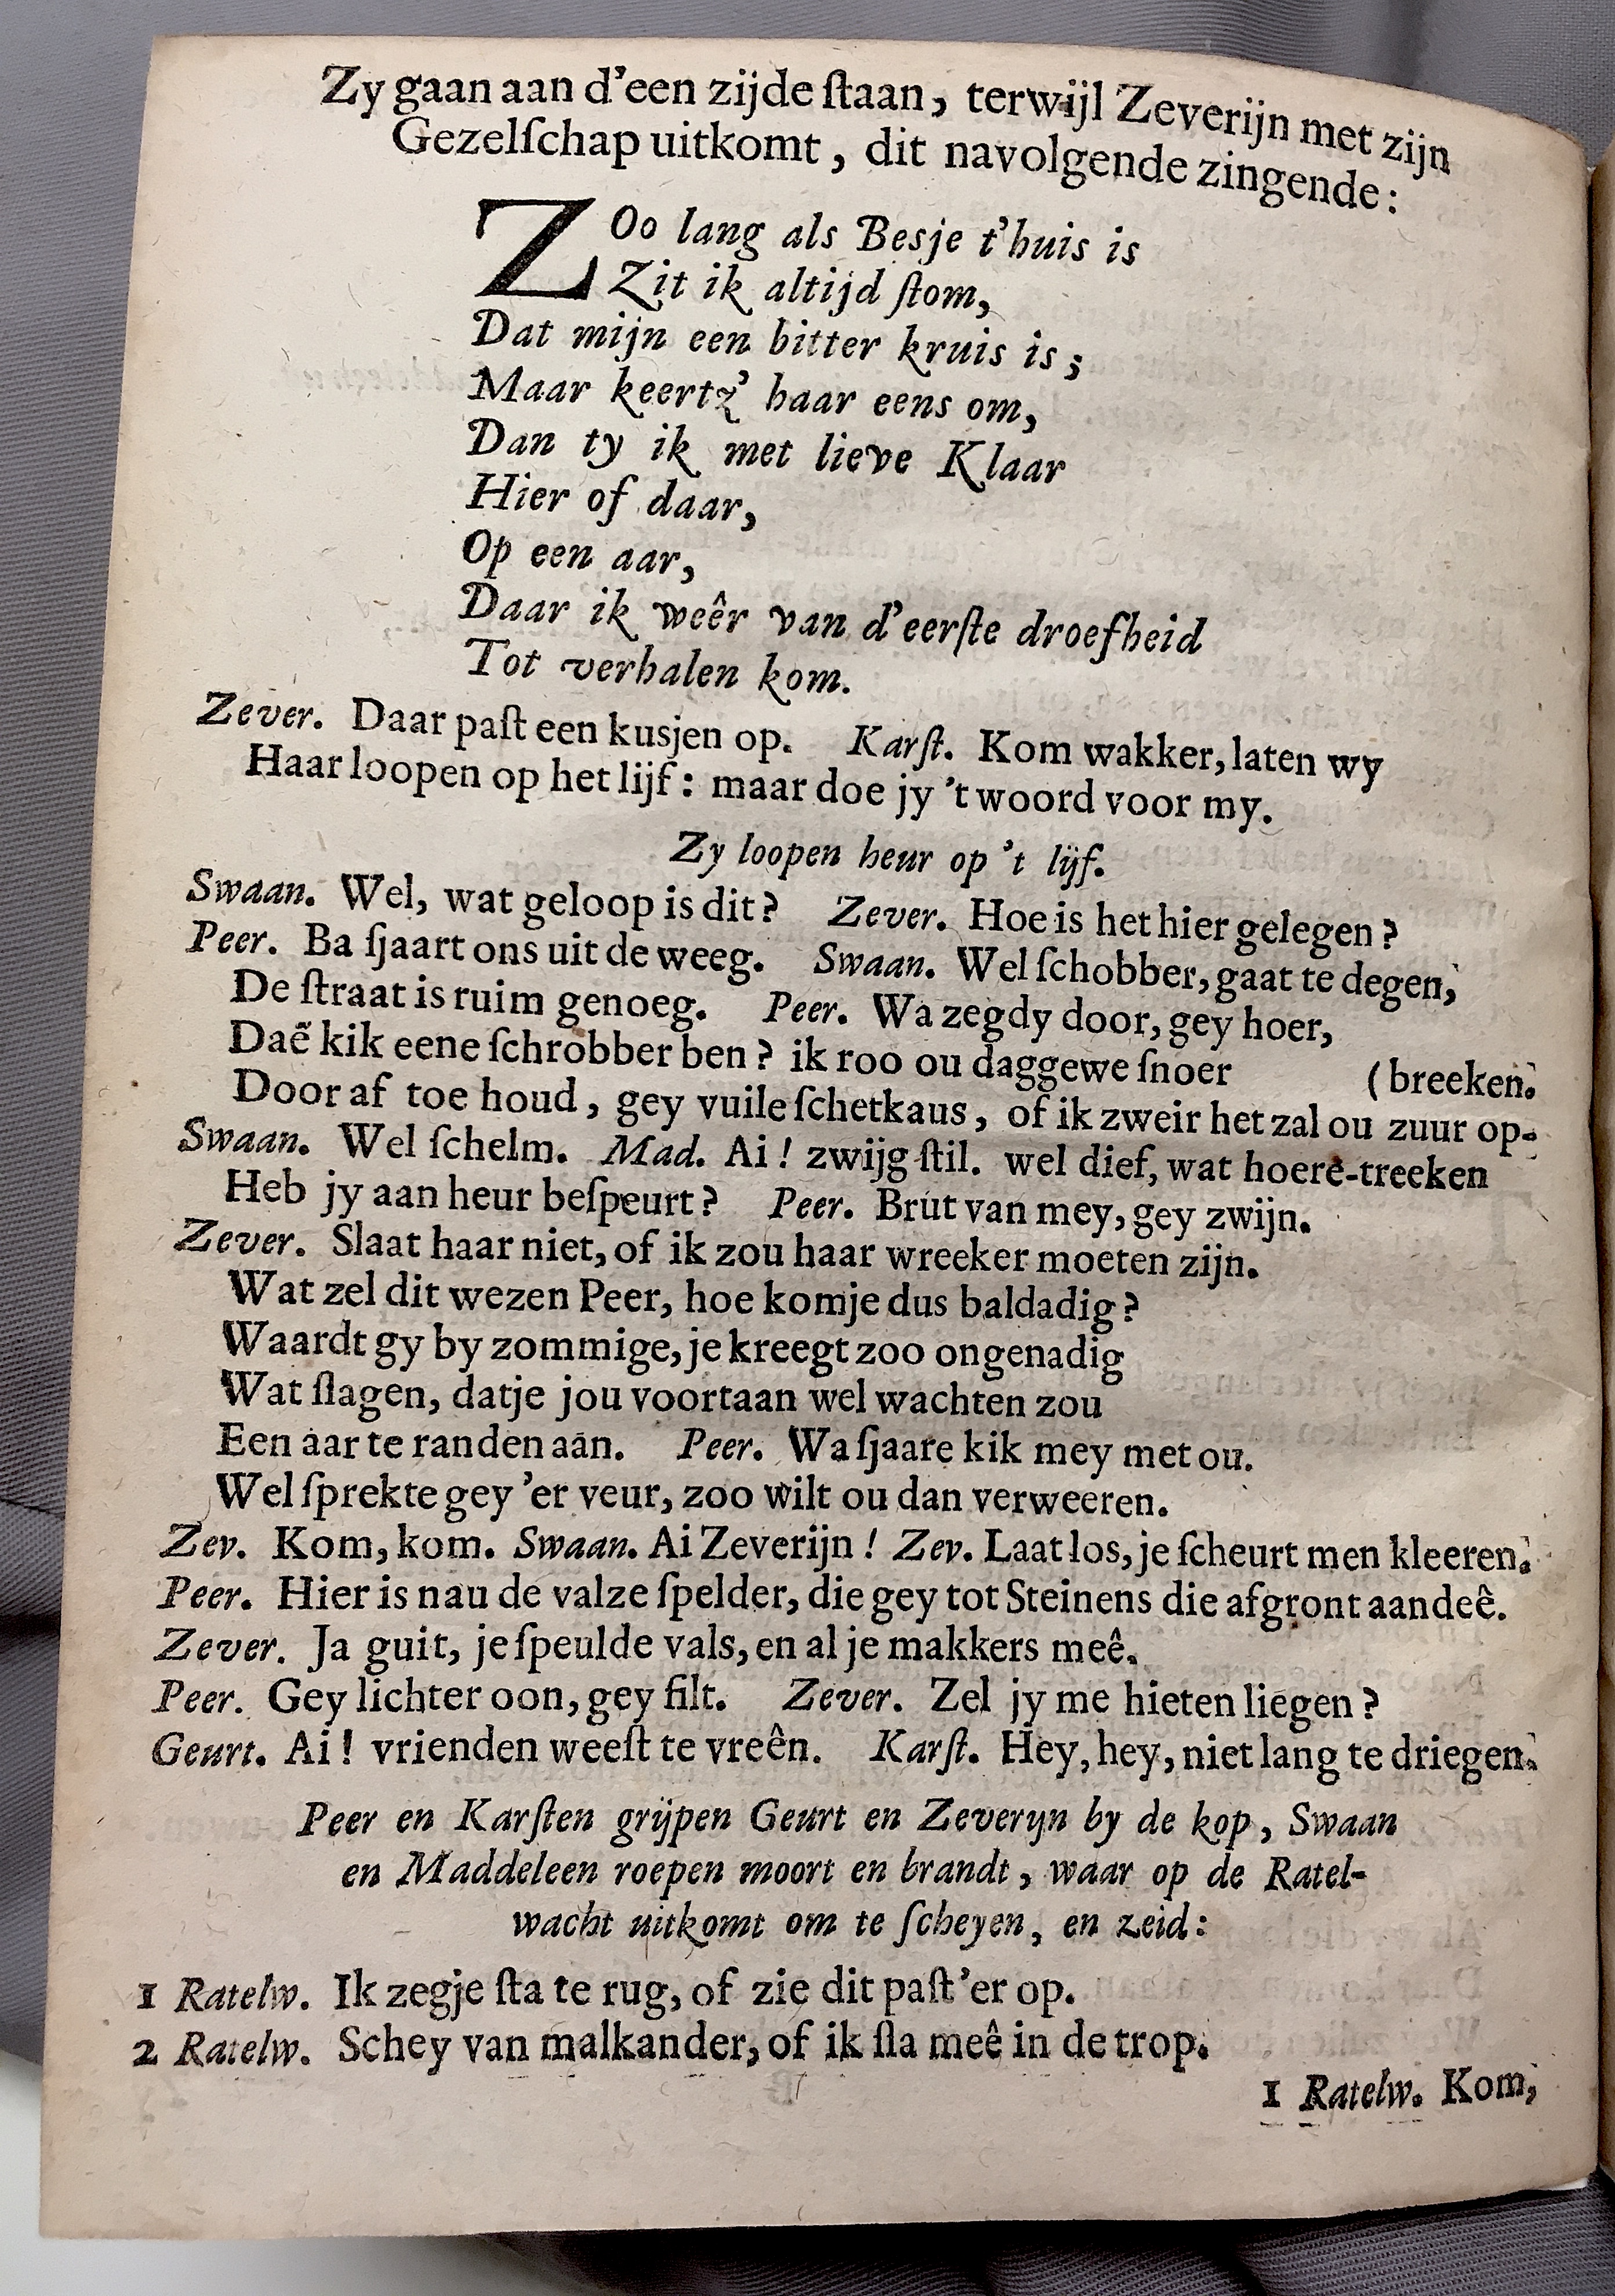 Zy gaan aan d'een zijde ſtaan, terwijl Zeverijn met zijn
Gezelſchap uitkomt, dit navolgende zingende:
ZOo lang als Besje t'huis is
Zit ik altijd ſtom,
Dat mijn een bitter kruis is;
Maar keertz' haar eens om,
Dan ty ik met lieve Klaar
Hier of daar,
Op een aar,
Daar ik weêr van d'eerſte droefheid
Tot verhalen kom.
Zever. Daar paſt een kusjen op. Karſt. Kom wakker, laten wy
Haar loopen op het lijf: maar doe jy 't woord voor my.
Zy loopen heur op 't lijf.
Swaan. Wel, wat geloop is dit? Zever. Hoe is het hier gelegen?
Peer. Ba ſjaart ons uit de weeg. Swaan. Wel ſchobber, gaat te degen,
De ſtraat is ruim genoeg. Peer. Wa zegdy door, gey hoer,
Daẽ kik eene ſchrobber ben? ik roo ou daggewe ſnoer (breeken.
Door af toe houd, gey vuile ſchetkaus, of ik zweir het zal ou zuur op-
Swaan. Wel ſchelm. Mad. Ai! zwijg ſtil. wel dief, wat hoere-treeken
Heb jy aan heur beſpeurt? Peer. Brut van mey, gey zwijn.
Zever. Slaat haar niet, of ik zou haar wreeker moeten zijn.
Wat zel dit wezen Peer, hoe komje dus baldadig?
Waardt gy by zommige, je kreegt zoo ongenadig
Wat ſlagen, datje jou voortaan wel wachten zou
Een aar te randen aan. Peer. Wa ſjaare kik mey met ou.
Wel ſprekte gey 'er veur, zoo wilt ou dan verweeren.
Zev. Kom, kom. Swaan. Ai Zeverijn! Zev. Laat los, je ſcheurt men kleeren.
Peer. Hier is nau de valze ſpelder, die gey tot Steinens die afgront aandeê.
Zever. Ja guit, je ſpeulde vals, en al je makkers meê.
Peer. Gey lichter oon, gey filt. Zever. Zel jy me hieten liegen?
Geurt. Ai! vrienden weeſt te vreên. Karſt. Hey, hey, niet lang te driegen.
Peer en Karſten grijpen Geurt en Zeverijn by de kop, Swaan
en Maddeleen roepen moort en brandt, waar op de Ratel-
wacht uitkomt om te ſcheyen, en zeid:
1 Ratelw. Ik zegje ſta te rug, of zie dit paſt 'er op.
2 Ratelw. Schey van malkander, of ik ſla meê in de trop.
1 Ratelw. Kom,